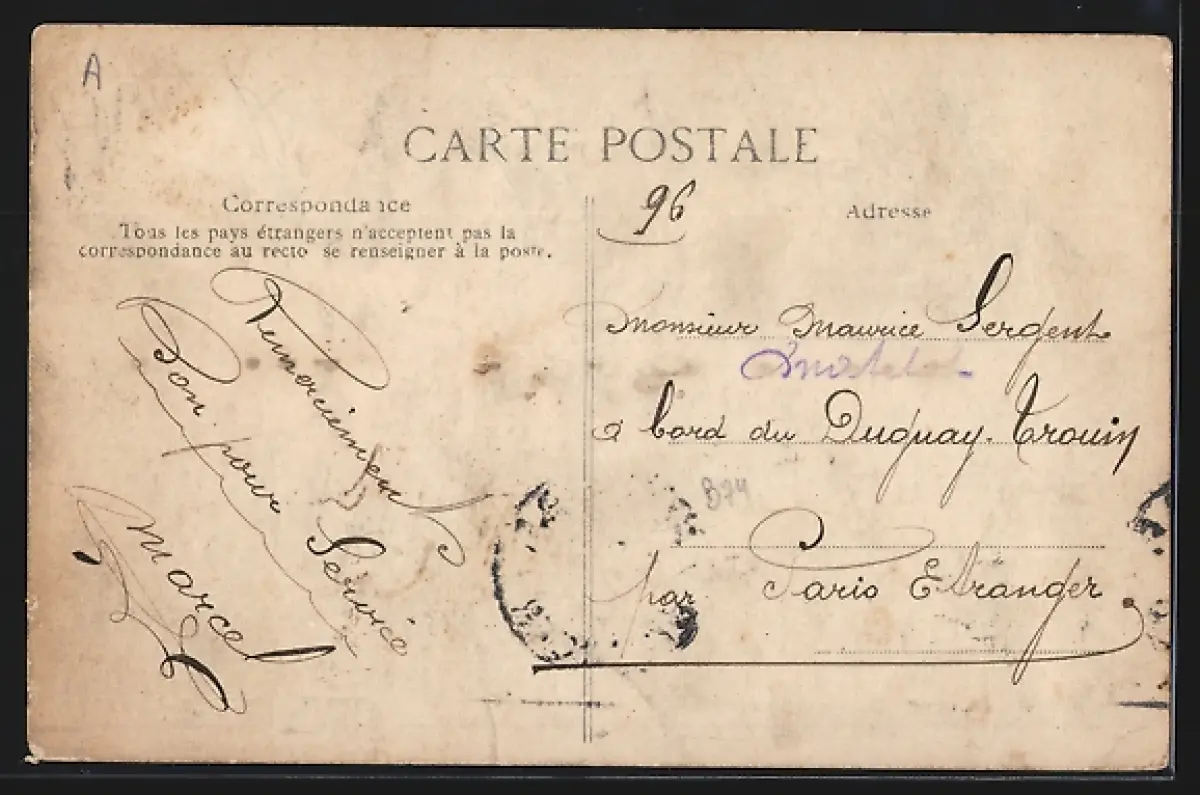 A
CARTE POSTALE
Correspondance
Tous les pays étrangers n'acceptent pas la
correspondance au recto se renseigner à la poste.
Remerciements
Bon pour Service
Marcel
96
Adresse
Monsieur Maurice Sergent
Matelot
à bord du Duguay-Trouin
B74
par Paris Etranger